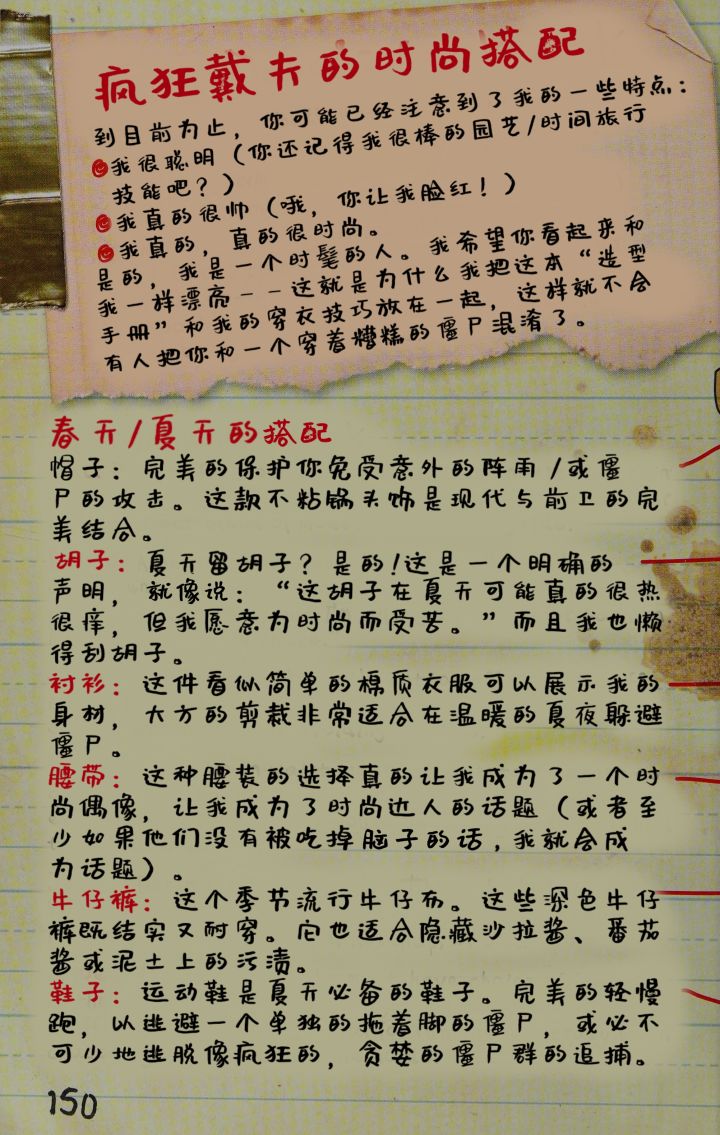 疯狂戴夫的时尚搭配
到目前为止，你可能已经注意到了我的一些特点：
我很聪明（你还记得我很棒的园艺/时间旅行
技能吧？）
我真的很帅（哦，你让我脸红！）
我真的，真的很时尚。
是的，我是一个时髦的人。我希望你看起来和
我一样漂亮--这就是为什么我把这本“造型
手册”和我的穿衣技巧放在一起，这样就不会
有人把你和一个穿着糟糕的僵尸混淆了。
春天/夏天的搭配
帽子：完美的保护你免受意外的阵雨/或僵
尸的攻击。这款不粘锅头饰是现代与前卫的完
美结合。
胡子：夏天留胡子？是的！这是一个明确的
声明，就像说：“这胡子在夏天可能真的很热
很痒，但我愿意为时尚而受苦。”而且我也懒
得刮胡子。
衬衫：这件看似简单的棉质衣服可以展示我的
身材，大方的剪裁非常适合在温暖的夏夜躲避
僵尸。
腰带：这种腰装的选择真的让我成为了一个时
尚偶像，让我成为了时尚达人的话题（或者至
少如果他们没有被吃掉脑子的话，我就会成
为话题）。
牛仔裤：这个季节流行牛仔布。这些深色牛仔
裤既结实又耐穿。它也适合隐藏沙拉酱、番茄
酱或泥土上的污渍。
鞋子：运动鞋是夏天必备的鞋子。完美的轻慢
跑，以逃避一个单独的拖着脚的僵尸，或必不
可少地逃脱像疯狂的，贪婪的僵尸群的追捕。
150